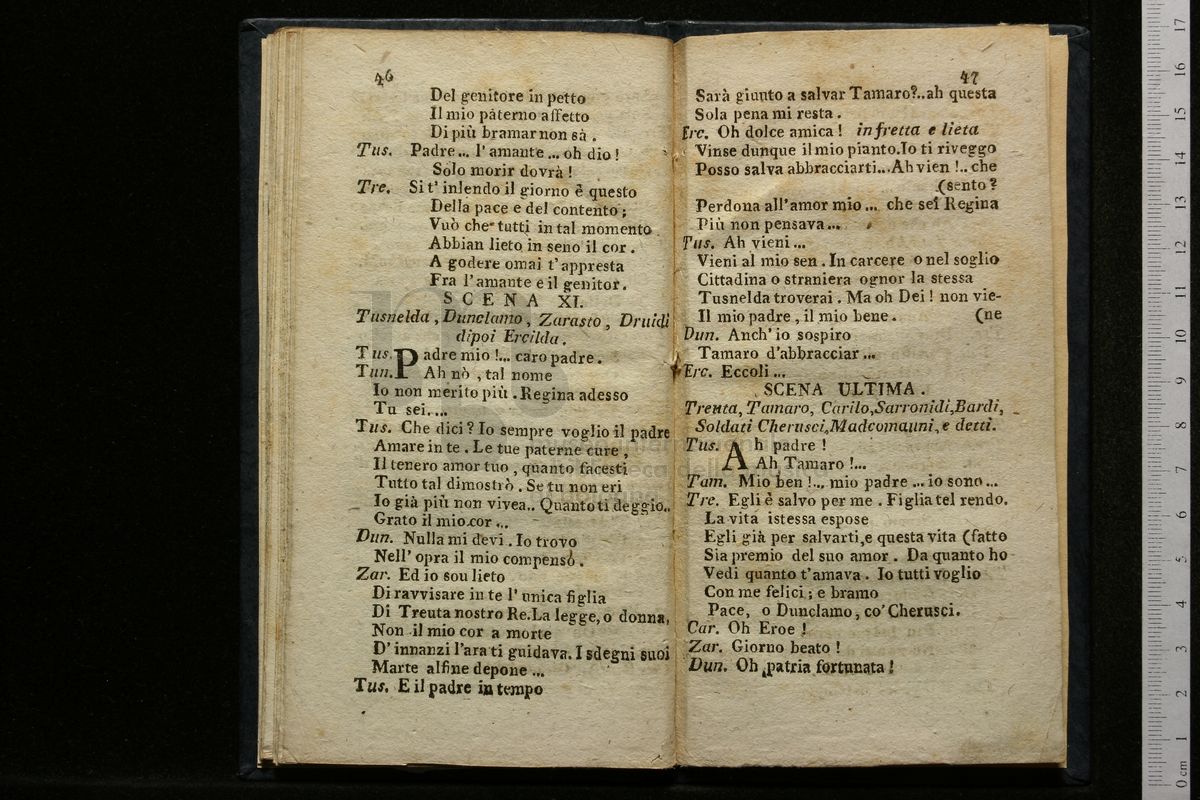 46
Del genitore in petto
Il mio paterno affetto
Di più bramar non sà .
Tus. Padre... l' amante ... oh dio !
Solo morir dovrà !
Tre. Si t' intendo il giorno è questo
Della pace e del contento ;
Vuò che tutti in tal momento
Abbian lieto in seno il cor .
A godere omai t' appresta
Fra l' amante e il genitor .
SCENA XI.
Tusnelda , Dunclamo , Zarasto , Druidi
dipoi Ercilda .
Tus. Padre mio !... caro padre .
Tun. Ah nò , tal nome
Io non merito più . Regina adesso
Tu sei....
Tus. Che dici ? Io sempre voglio il padre
Amare in te . Le tue paterne cure ,
Il tenero amor tuo , quanto facesti
Tutto tal dimostrò . Se tu non eri
Io già più non vivea.. Quanto ti deggio..
Grato il mio cor ...
Dun. Nulla mi devi . Io trovo
Nell' opra il mio compenso .
Zar. Ed io son lieto
Di ravvisare in te l' unica figlia
Di Treuta nostro Re. La legge, o donna,
Non il mio cor a morte
D' innanzi l'ara ti guidava. I sdegni suoi
Marte alfine depone ...
Tus. E il padre in tempo
47
Sarà giunto a salvar Tamaro?..ah questa
Sola pena mi resta .
Erc. Oh dolce amica ! in fretta e lieta
Vinse dunque il mio pianto. Io ti riveggo
Posso salva abbracciarti... Ah vien !.. che
(sento ?
Perdona all' amor mio ... che sei Regina
Più non pensava ...
Tus. Ah vieni ...
Vieni al mio sen . In carcere o nel soglio
Cittadina o straniera ognor la stessa
Tusnelda troverai . Ma oh Dei ! non vie-
Il mio padre , il mio bene . (ne
Dun. Anch' io sospiro
Tamaro d'abbracciar ...
Erc. Eccoli ...
SCENA ULTIMA .
Trenta, Tamaro, Carilo, Sarronidi, Bardi,
Soldati Cherusci, Madcomanni, e detti.
Tus. Ah padre !
Ah Tamaro !...
Tam. Mio ben !... mio padre ... io sono ...
Tre. Egli è salvo per me . Figlia tel rendo.
La vita istessa espose
Egli già per salvarti, e questa vita (fatto
Sia premio del suo amor . Da quanto ho
Vedi quanto t'amava . Io tutti voglio
Con me felici ; e bramo
Pace, o Dunclamo, co' Cherusci.
Car. Oh Eroe !
Zar. Giorno beato !
Dun. Oh patria fortunata !